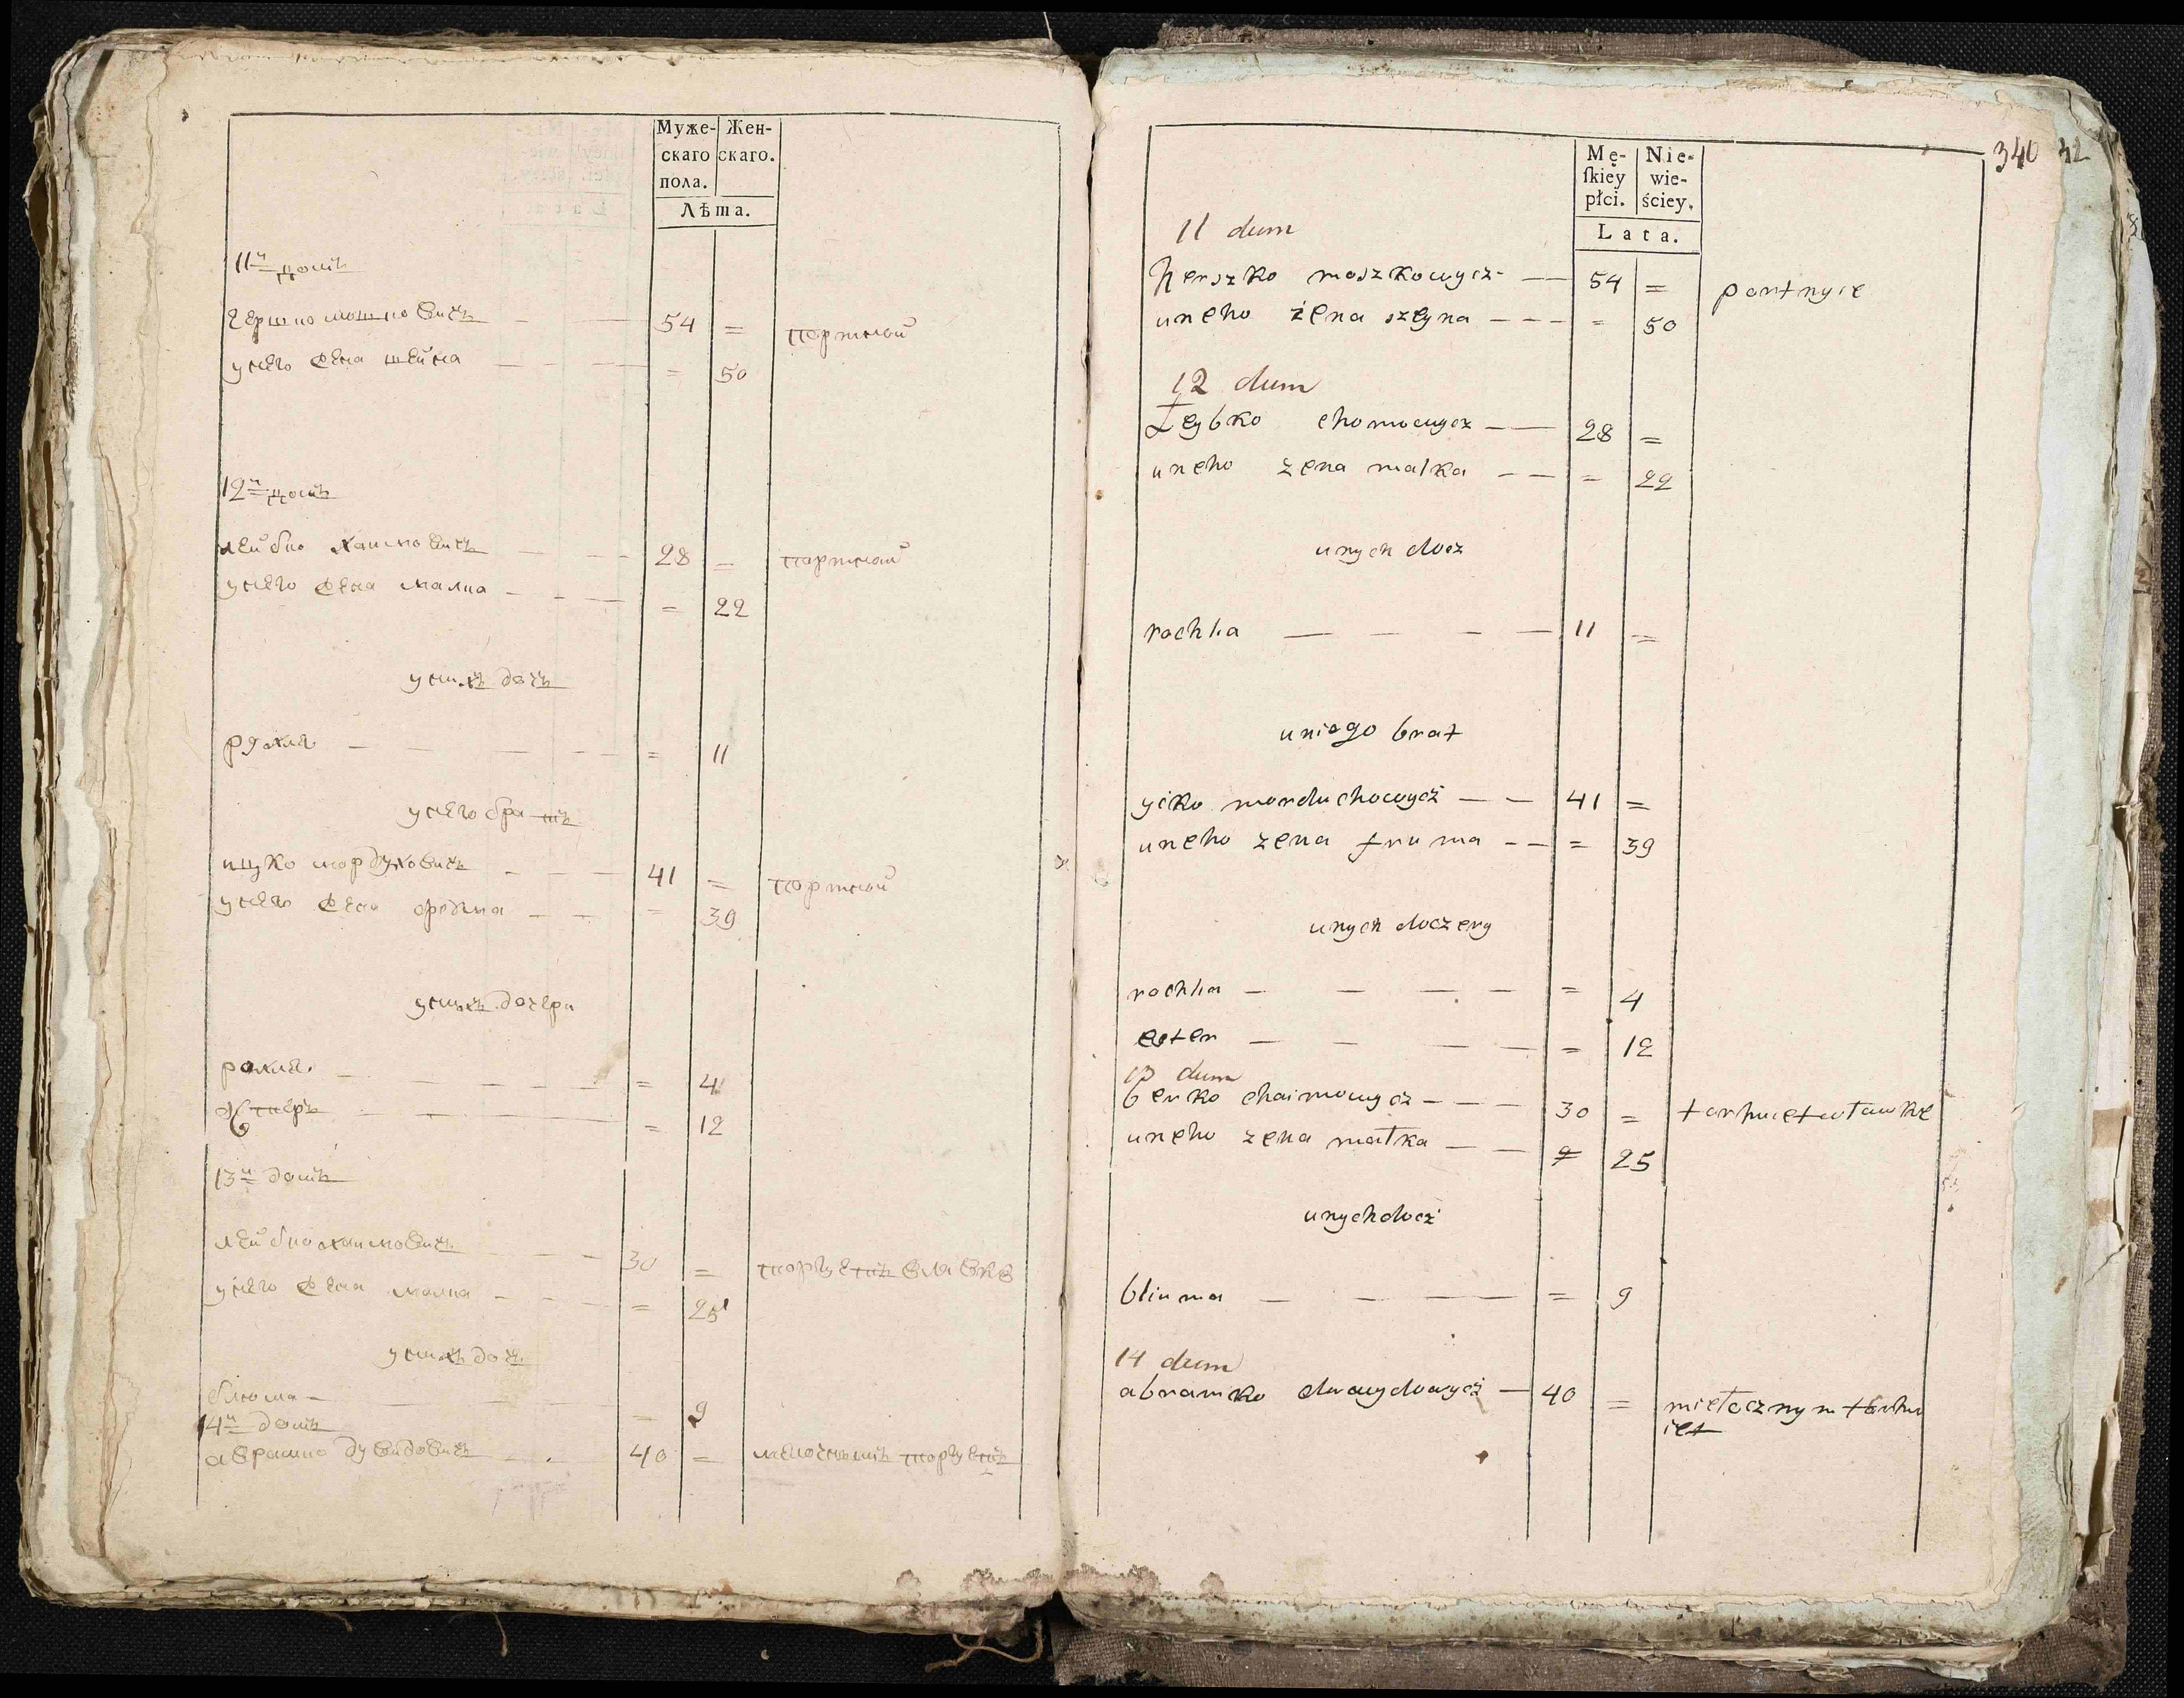 Муже- Жен-
скаго скаго.
пола.
Лѣта.
11й домъ
гершко мошковичъ — — 54 =  портной
унего жена шейна — — = 50
12й домъ
лейбко хаимовичъ — — 28 = портной
унего жена малка — — — = 22
унихъ дочъ
рухля — — — — — = 11
унего братъ
ицко мордуховичъ — — — 41 = портной
унего жена фрума — — = 39
унихъ дочери
рохля — — — — — = 4
естеръ — — — = 12
13й домъ
лейбко хаимовичъ — — 30 = торгуетъ влавке
унего жена малка — — — = 25
унихъ дочъ
блюма — — — — = 9
14й домъ
абрамко дувидовичъ — . 40 = мелочнымъ торгуетъ
340 42
Mę- Nie-
ſkiey wie-
płci. ściey.
Lata.
11 dum
herszko moszkowycz — 54 = portnyie
uneho żena szeyna — — — = 50
12 dum
Leybko chomowycz — — 28 =
uneho zena malka — — = 22
unych docz
rochla — — — — 11 =
uniego brat
ycko morduchowycż — — 41 =
uneho zena fruma — — = 39
unych doczery
rochla — — — — = 4
ester — — — — = 12
13 dum
berko chaimowycz — — — 30 = torhuietwławke
uneho zena małka — — = 25
unychdocż
bliuma — — — = 9
14 dum
abramko duwydowycż — 40 = miełocznym torhu
iet